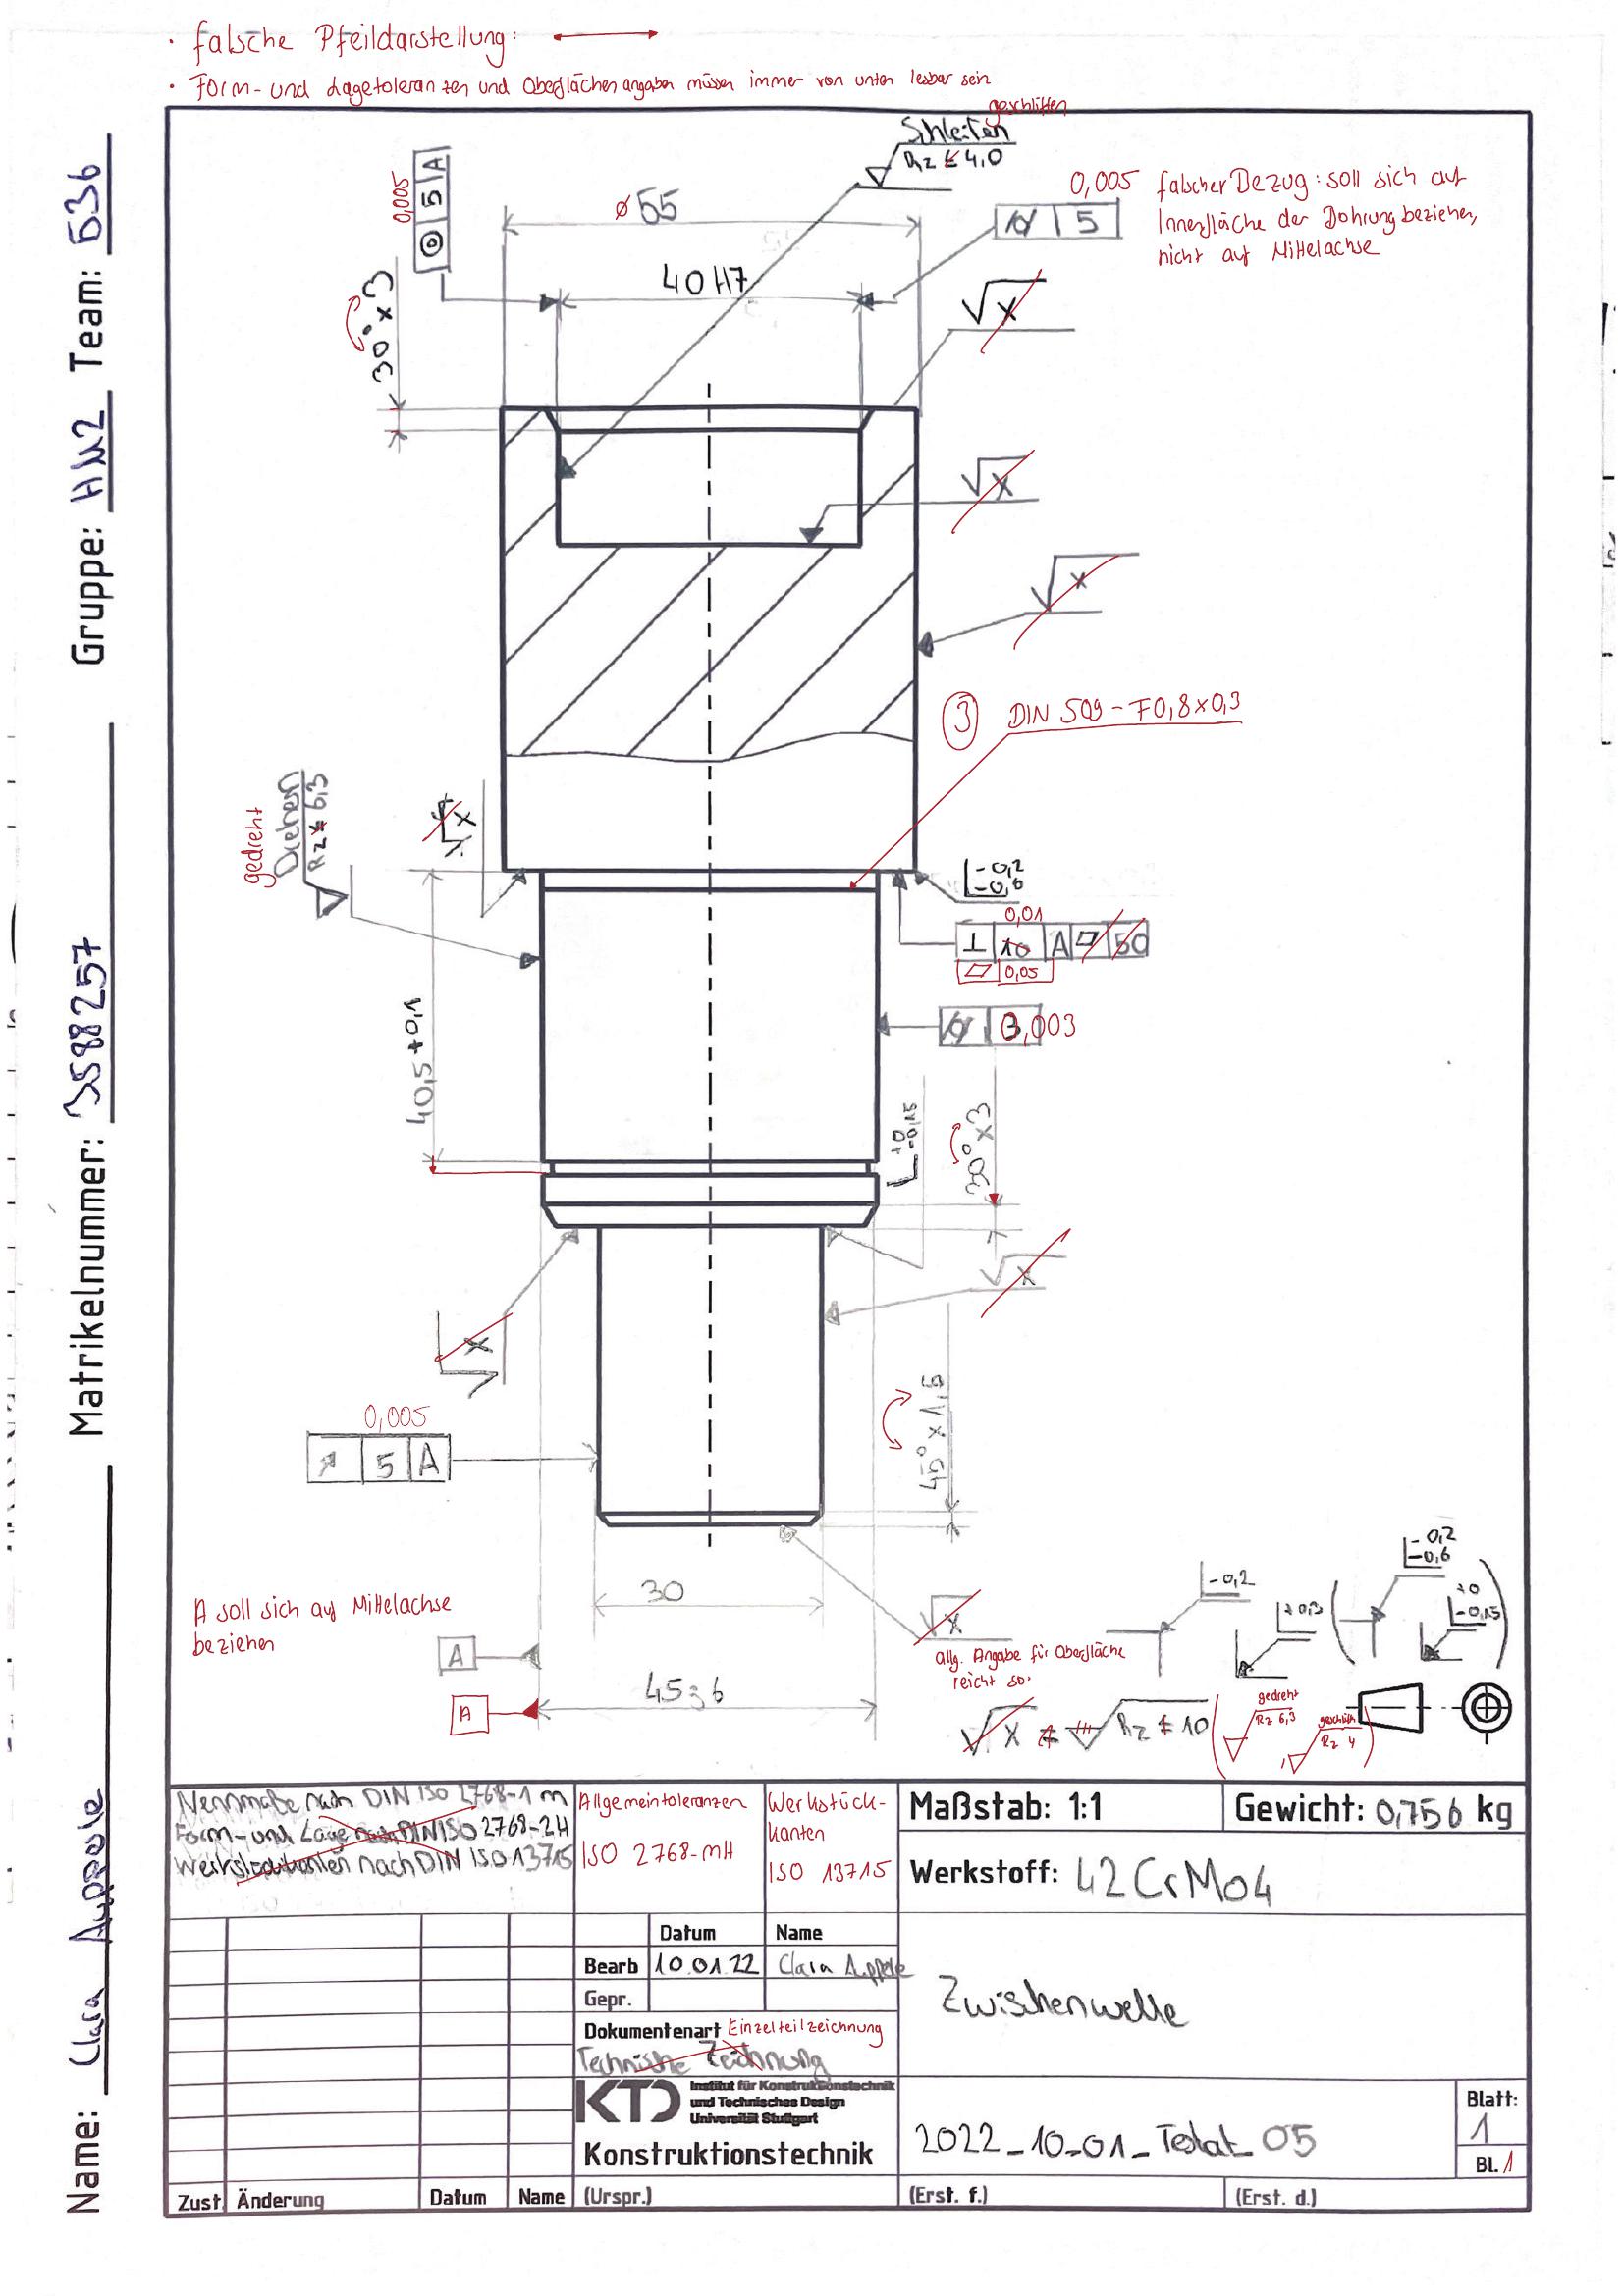 · falsche Pfeildarstellung:
· Form- und Lagetoleranzen und Oberflächenangaben müssen immer von unten lesbar sein
geschliffen
Schleifen
Rz ≤ 4,0
0,005
◎ 5 A
ø 55
0,005 falscher Bezug: soll sich auf
Innenfläche der Bohrung beziehen,
nicht auf Mittelachse
⌭ 5
40 H7
30° x 3
√x
√x
√x
③ DIN 509 - F0,8x0,3
gedreht
Drehen
Rz ≤ 6,3
√x
-0,2
-0,6
0,01
⊥ 10 A ⏥ 50
⏥ 0,05
⌭ 0,003
40,5 +0,1
+0
-0,15
30° x 3
√x
√x
45° x 1,5
0,005
↗ 5 A
30
A soll sich auf Mittelachse
beziehen
A
A
√x
allg. Angabe für Oberfläche
reicht so.
-0,2
+0,3
-0,2
-0,6
+0
-0,15
√x = √Rz ≤ 10
gedreht
Rz 6,3
geschliffen
Rz 4
Nennmaße nach DIN ISO 2768-1 m
Form- und Lage nach DIN ISO 2768-2H
Werkstückkanten nach DIN ISO 13715
Allgemeintoleranzen
ISO 2768-mH
Werkstück-
kanten
ISO 13715
Maßstab: 1:1
Gewicht: 0,756 kg
Werkstoff: 42CrMo4
Datum Name
Bearb 10.01.22 Clara Auppele
Gepr.
Zwischenwelle
Dokumentenart Einzelteilzeichnung
Technische Zeichnung
KTD Institut für Konstruktionstechnik
und Technisches Design
Universität Stuttgart
Konstruktionstechnik
2022_10_01_Testat_05
Blatt:
1
Bl. 1
Zust. Änderung Datum Name (Urspr.) (Erst. f.) (Erst. d.)
Name: Clara Auppele Matrikelnummer: 3588257 Gruppe: HM2 Team: 536